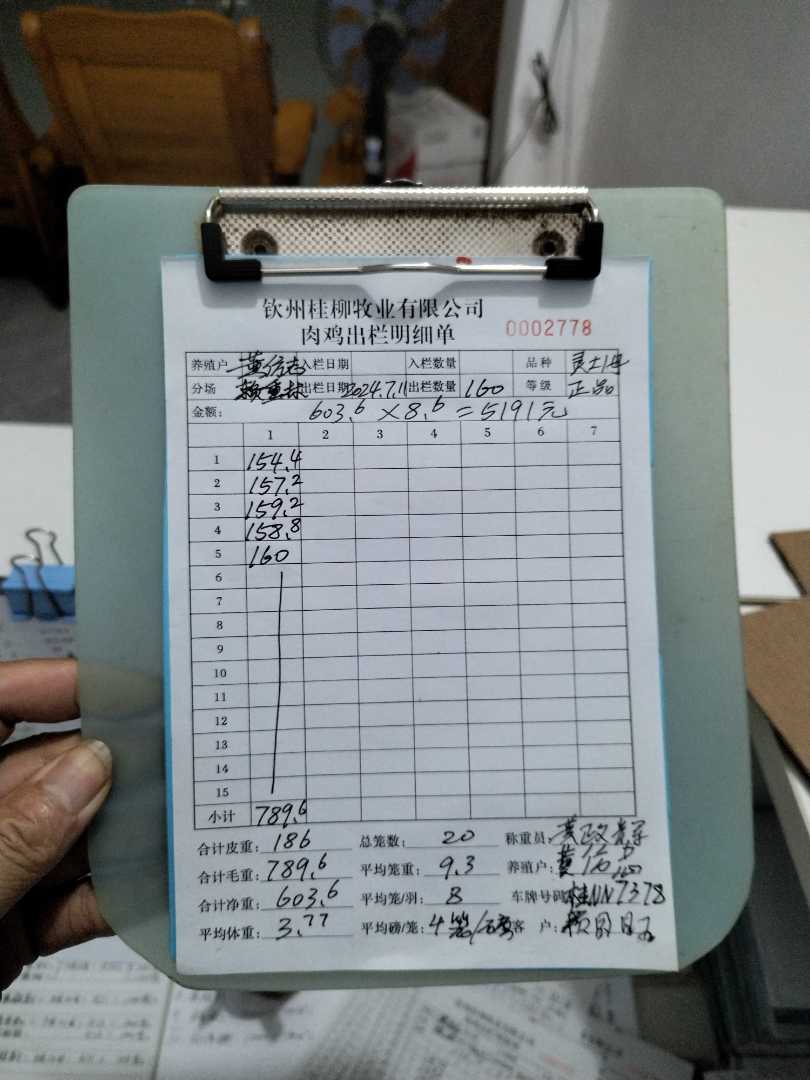 钦州桂柳牧业有限公司
肉鸡出栏明细单 0002778
养殖户 黄 入栏日期 入栏数量 品种 灵土
分场 出栏日期 2024.7.11 出栏数量 160 等级 正品
金额: 603.6 × 8.6 = 5191元
1 2 3 4 5 6 7
1 154.4
2 157.2
3 159.2
4 158.8
5 160
6
7
8
9
10
11
12
13
14
15
小计 789.6
合计皮重: 186 总笼数: 20 称重员: 黄政
合计毛重: 789.6 平均笼重: 9.3 养殖户: 黄
合计净重: 603.6 平均笼/羽: 8 车牌号码: 桂NN7378
平均体重: 3.77 平均磅/笼: 4笼/ 客 户: